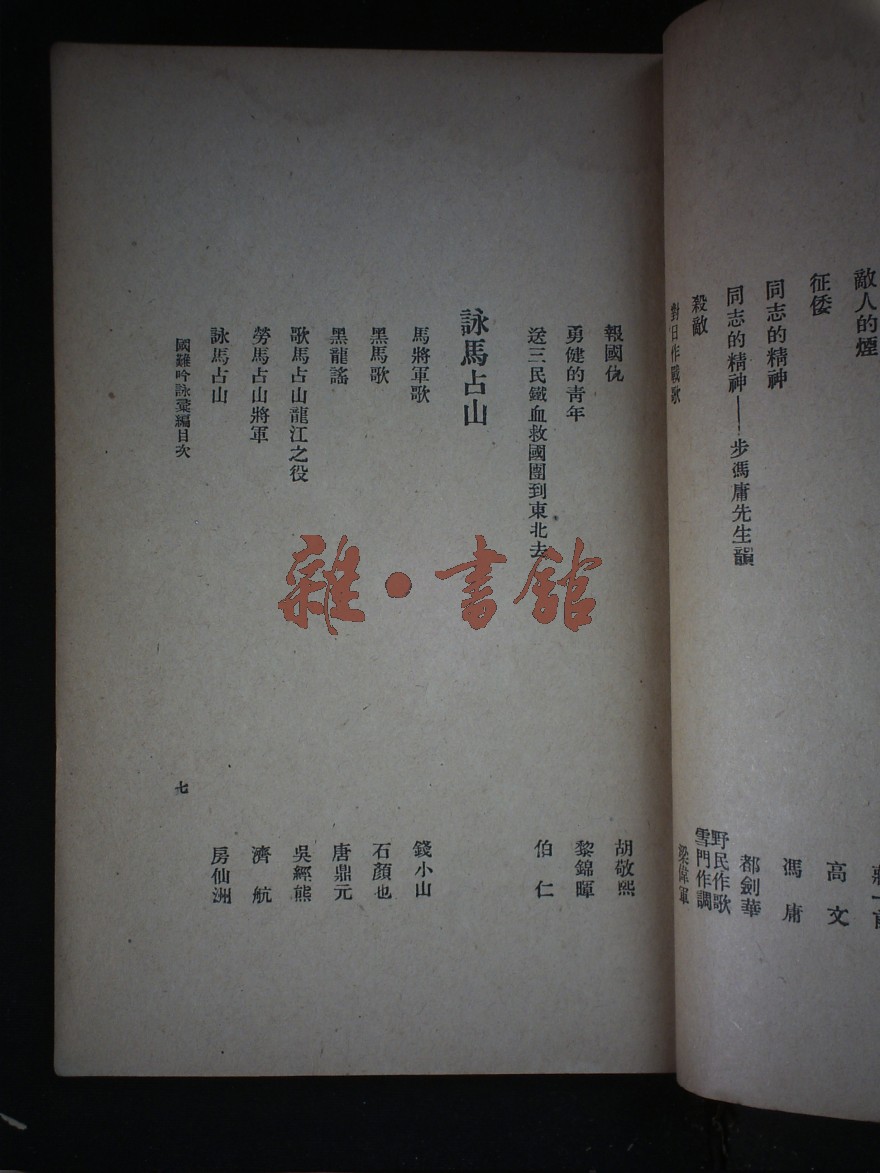 敵人的煙
征倭 高文
同志的精神 馮庸
同志的精神——步馮庸先生韻 都劍華
殺敵 野民作歌 雪門作調
對日作戰歌 梁偉軍
報國仇 胡敬熙
勇健的青年 黎錦暉
送三民鐵血救國團到東北去 伯仁
詠馬占山
馬將軍歌 錢小山
黑馬歌 石顏也
黑龍謠 唐鼎元
歌馬占山龍江之役 吳經熊
勞馬占山將軍 濟航
詠馬占山 房仙洲
國難吟詠彙編目次 七
雜·書館